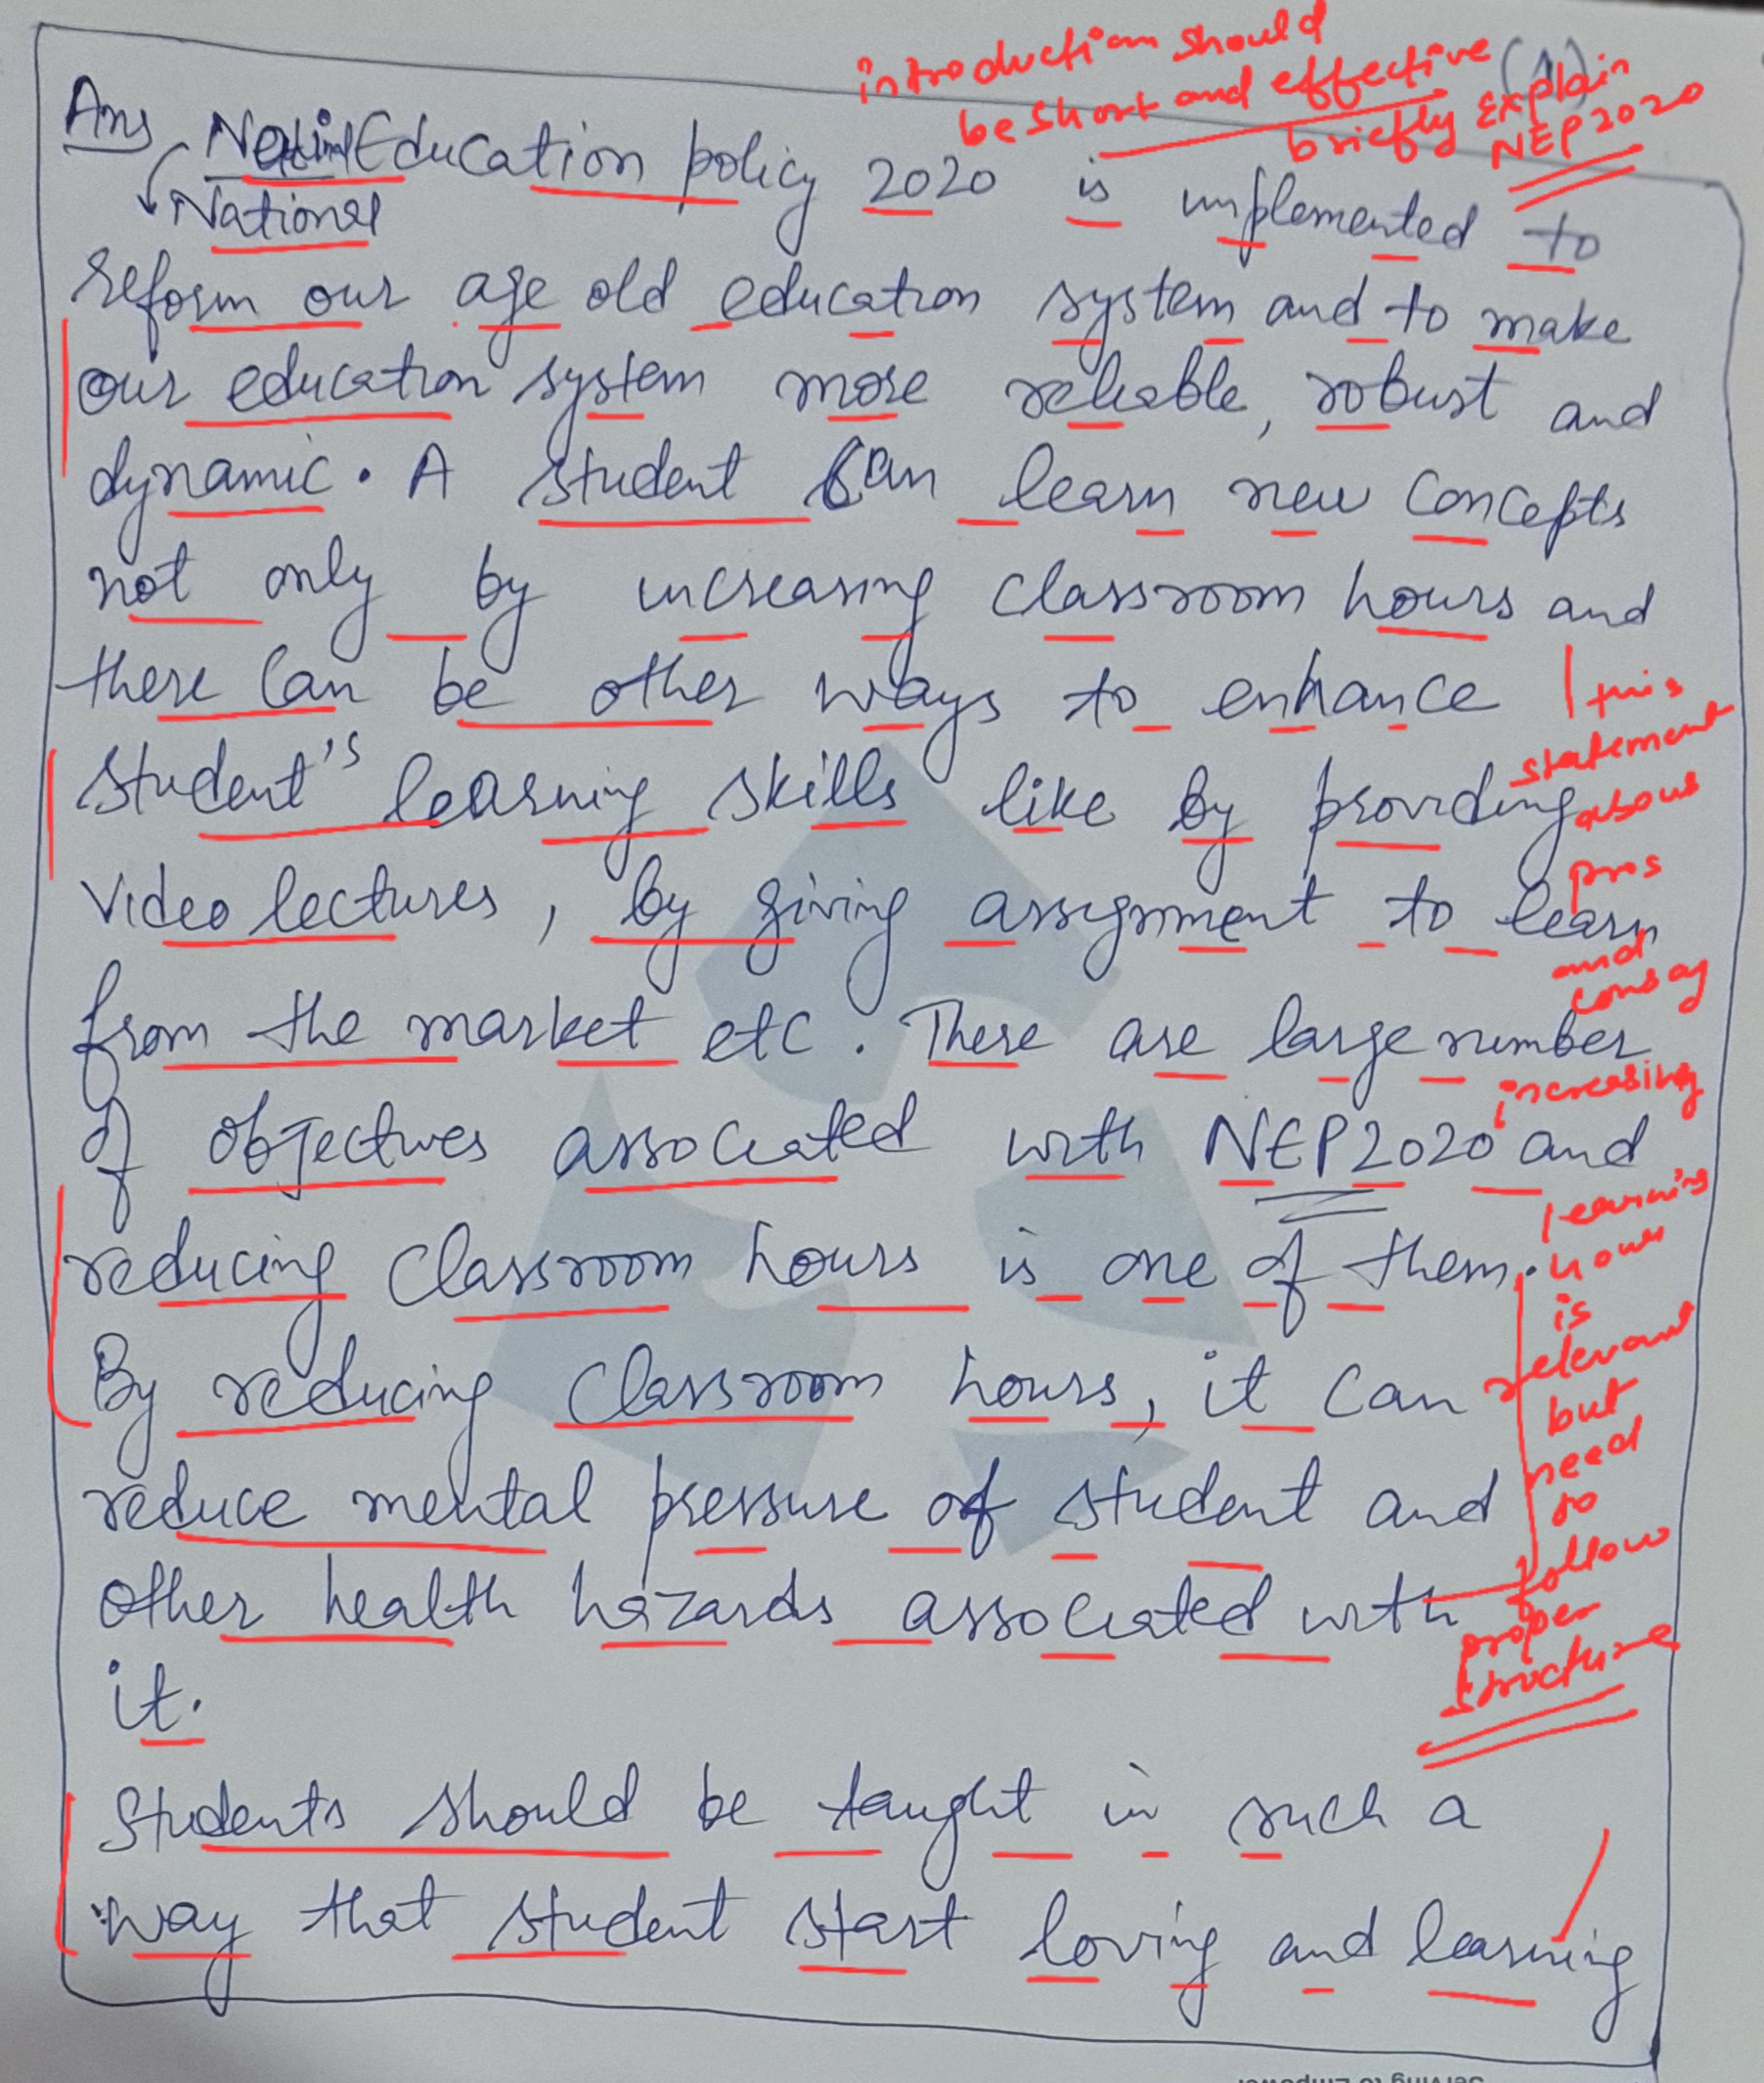 introduction should
be short and effective
briefly explain
NEP 2020
(1)
Ans National Education policy 2020 is implemented to
National
reform our age old education system and to make
our education system more reliable, robust and
dynamic. A student can learn new concepts
not only by increasing classroom hours and
there can be other ways to enhance
student's learning skills like by providing
video lectures, by giving assignment to learn
from the market etc. There are large number
of objectives associated with NEP 2020 and
reducing classroom hours is one of them.
By reducing classroom hours, it can
reduce mental pressure of student and
other health hazards associated with
it.
Students should be taught in such a
way that student start loving and learning
this
statement
about
pros
and
cons of
increasing
learning
hour
is
relevant
but
need
to
follow
proper
structure